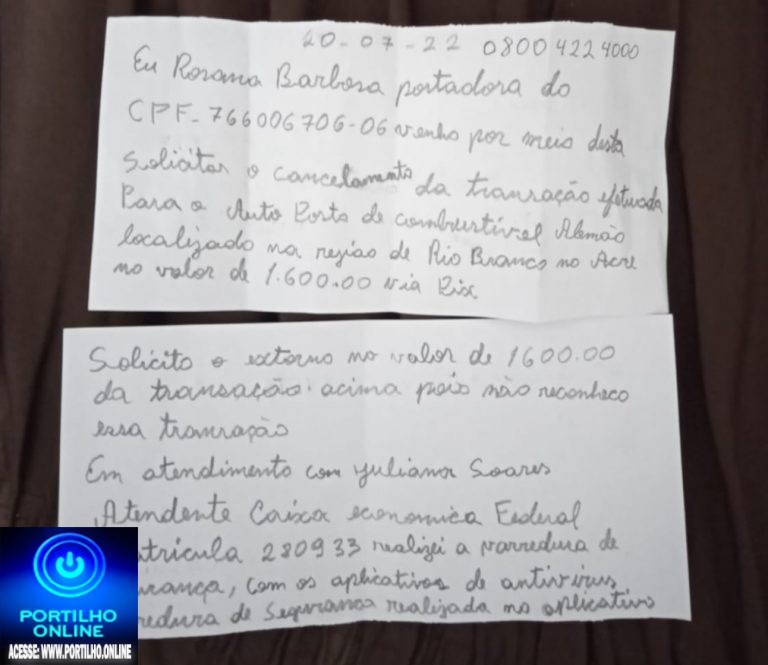 20-07-22 08004224000
Eu Rosana Barbosa portadora do
CPF-766006706-06 venho por meio desta
Solicitar o cancelamento da tranração efetuada
Para o Auto Posto de combustível Alemão
localizado na região de Rio Branco no Acre
no valor de 1.600.00 via Pix
Solicito o extorno no valor de 1600.00
da transação acima pois não reconheco
essa tranração
Em atendimento com yuliana Soares
Atendente Caixa economica Federal
tricula 280933 realizei a varredura de
urança, com os aplicativos de antivirus
redura de Seguranca realizada no aplicativo
PORTILHO
ONLINE
ACESSE: WWW.PORTILHO.ONLINE